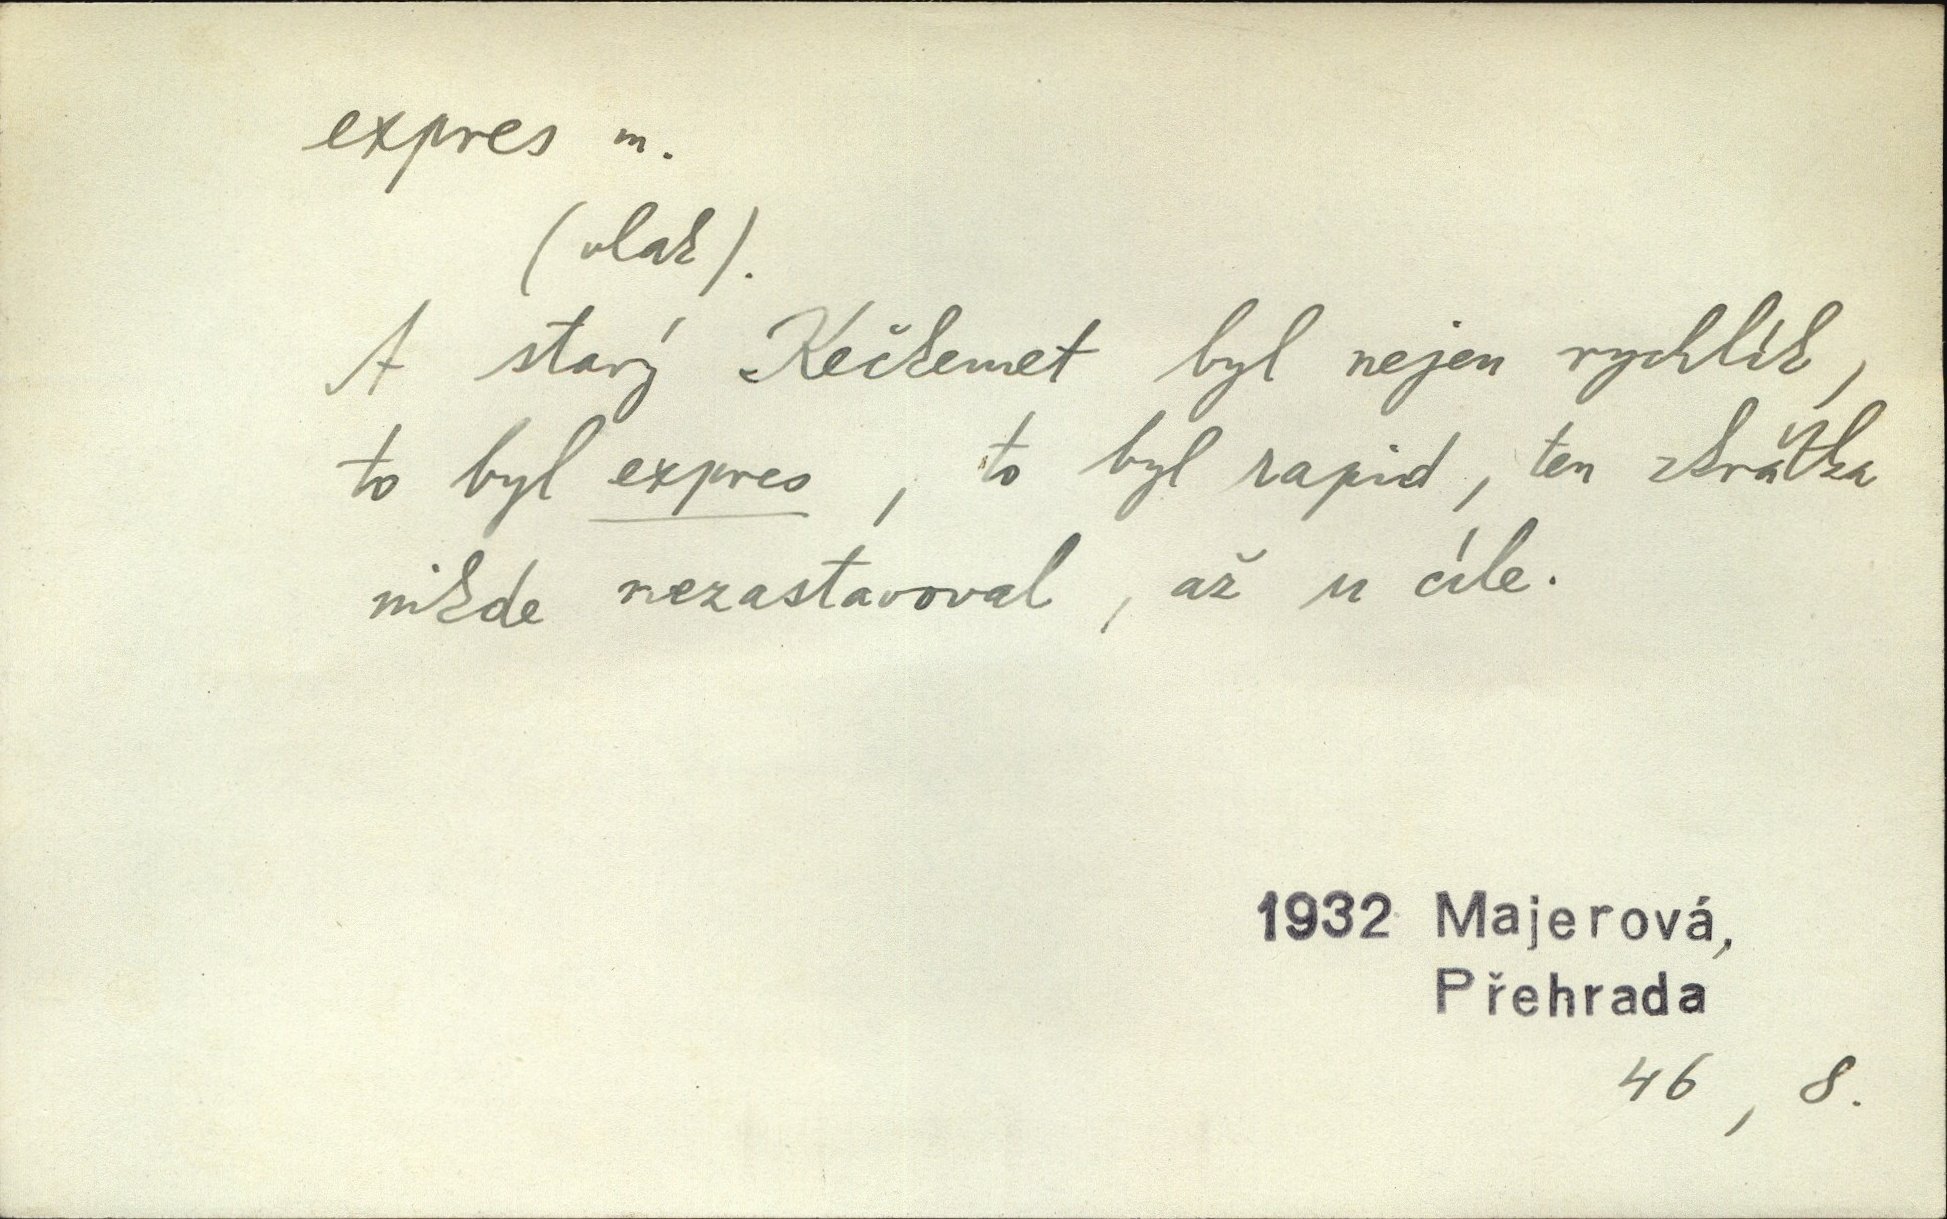 expres m.
(vlak).
A starý Kečkemet byl nejen rychlík,
to byl expres, to byl rapid, ten zkrátka
nikde nezastavoval, až u cíle.
1932 Majerová,
Přehrada
46, 8.